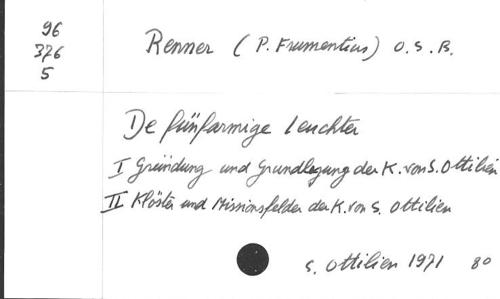 96
376
5
Renner (P. Frumentius) O.S.B.
De fünfarmige Leuchter
I Gründung und Grundlegung der K. von S. Ottilien
II Klöster und Missionsfelder der K. von S. Ottilien
S. Ottilien 1971 80